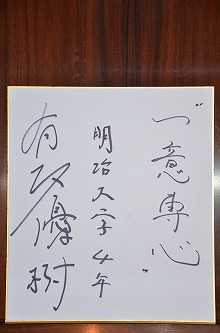 "一意専心"
明治大学4年
有安優樹